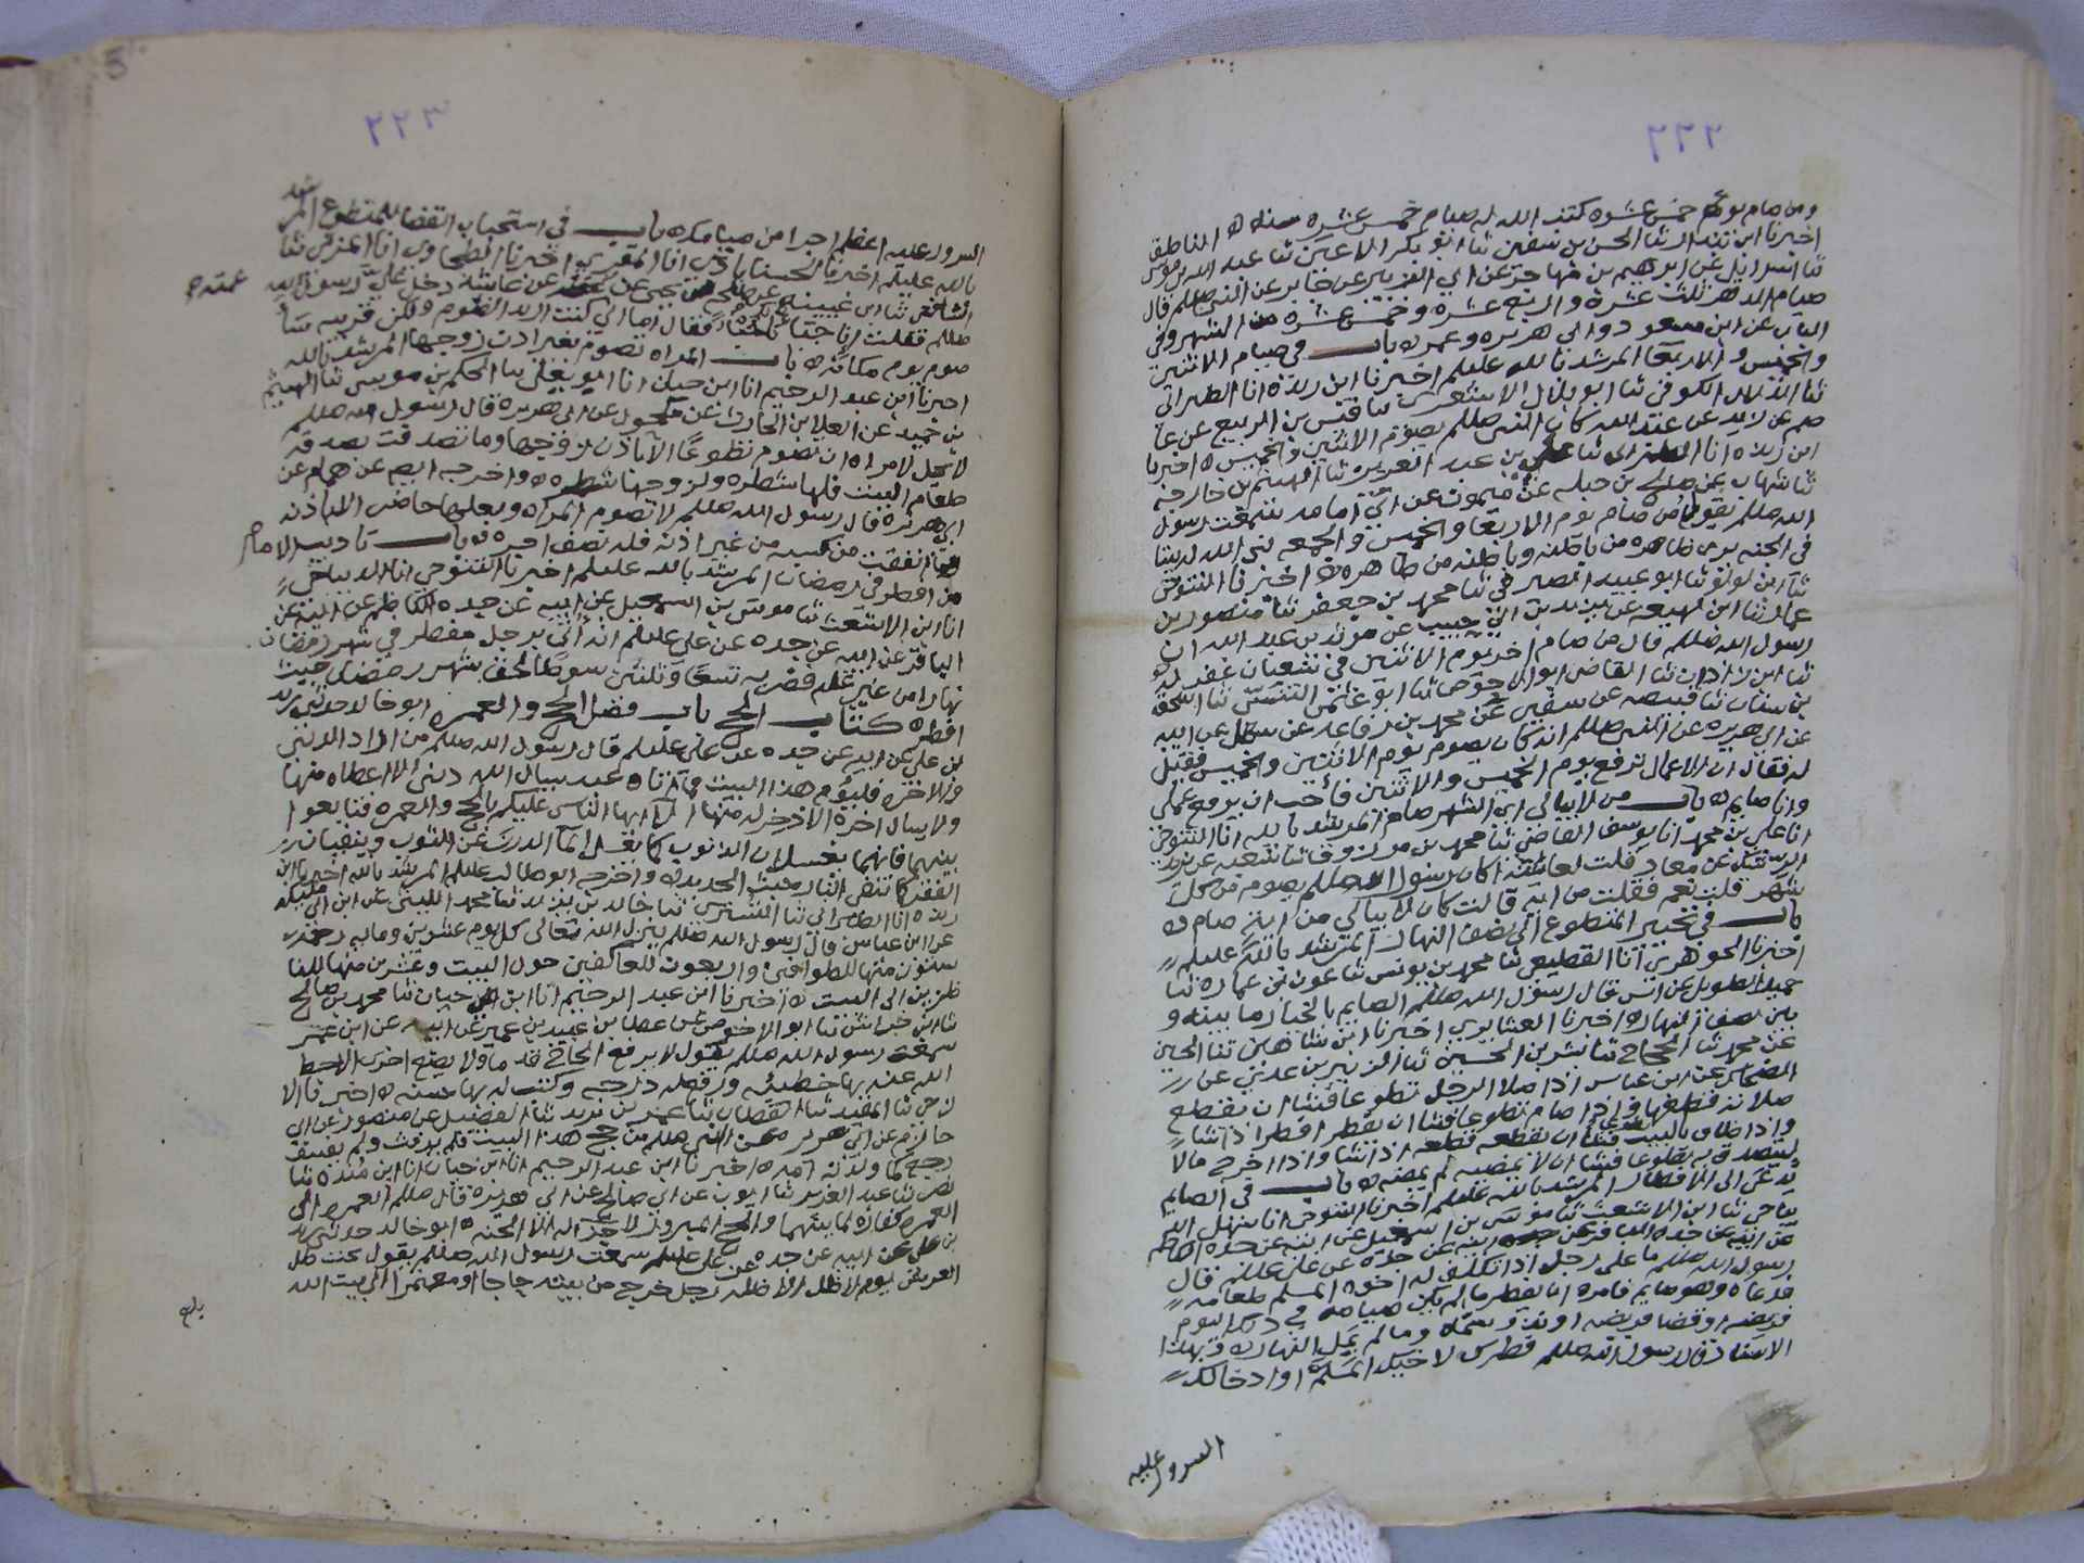 ٢٢٢
ومن صام يوم خمس عشره كتب الله له صيام خمس عشره سنه ه الناطق
اخبرنا ابن ثنا الحسن بن سفين ثنا ابو بكر الاعين ثنا عبد الله بن موسى
ثنا اسرايل عن ابرهيم بن مهاجر عن ابي الزبير عن جابر عن النبي صللم قال
صيام الدهر ثلث عشرة واربع عشرة وخمس عشره من الشهر وفي
الباب عن ابن مسعود وابي هريره وعمر ه باب في صيام الاثنين
والخميس والاربعا المرشد بالله عليلم اخبرنا ابن ريذه انا الطبراني
ثنا الكوفي ثنا ابو بلال الاشعري ثنا قيس بن الربيع عن عا
صم عن عن عبد الله كان النبي صللم يصوم الاثنين والخميس ه اخبرنا
ابن ريذه انا الطبراني ثنا علي بن عبد العزيز ثنا الهيثم بن خارجه
ثنا شهاب عن صالح بن جبله عن ميمون عن ابي امامه سمعت رسول
الله صللم يقول من صام يوم الاربعا والخميس والجمعه بنى الله له بيتا
في الجنه يرى ظاهره من باطنه وباطنه من ظاهره ه اخبرنا التنوخي
ثنا ابن لولو ثنا ابو عبيد الصيرفي ثنا محمد بن جعفر ثنا منصور بن
عمار ثنا ابن لهيعه عن يزيد بن ابي حبيب عن مرثد بن عبد الله ان
رسول الله صللم قال من صام اخر يوم الاثنين في شعبان غفر له
ثنا ابن زاذان ثنا القاضي ابو الاحوص ثنا ابو غانم ثنا اسحق
بن سنان ثنا قبيصه عن سفين عن محمد بن رفاعه عن سهيل عن ابيه
عن ابي هريره عن النبي صللم انه كان يصوم يوم الاثنين والخميس فقيل
له فقال ان الاعمال ترفع يوم الخميس والاثنين فأحب ان يرفع عملي
وانا صايم ه باب من لا يبالي اي الشهر صام المرشد بالله انا التنوخي
انا علي بن محمد انا يوسف القاضي ثنا محمد بن مرزوق ثنا شعبه عن يزيد
الرشك عن معاذ قلت لعائشه اكان رسول الله صللم يصوم من كل
شهر قلت نعم فقلت من ايه قالت كان لا يبالي من ايه صام ه
باب في تخيير المتطوع الى نصف النهار المرشد بالله عليلم
اخبرنا الجوهري انا القطيعي ثنا محمد بن يونس ثنا عون بن عماره ثنا
حميد الطويل عن انس قال رسول الله صللم الصايم بالخيار ما بينه و
بين نصف النهار ه اخبرنا العشاري اخبرنا ابن شاهين ثنا الحسين
عن محمد ثنا الحجاج ثنا بشر بن الحسين ثنا الزبير بن عدي عن
الضحاك عن ابن عباس اذا صلا الرجل تطوعا فشا ان يقطع
صلاته قطعها واذا صام تطوعا فشا ان يفطر افطر اذا شا
واذا طاف بالبيت فشا ان يقطعه قطعه اذا شا واذا اخرج مالا
ليتصدق به تطوعا فشا ان لا يمضيه لم يمضه ه باب في الصايم
يدعى الى الافطار المرشد بالله عليلم اخبرنا التنوخي انا سهل الد
يباجي ثنا ابن الاشعث ثنا موسى بن اسمعيل عن ابيه عن جده الكاظم
عن ابيه عن جده الباقر عن ابيه عن جده عن علي عليلم قال
رسول الله صللم ما على رجل اذا تكلف له اخوه المسلم طعامه
فدعاه وهو صايم فامره ان يفطر ما لم يكن صيامه في ذلك اليوم
فريضه او قضا فريضه او نذر سماه وما لم يمل النهار ه وبهذا
الاسناد قال رسول الله صللم فطرك لاخيك المسلم او ادخالك
السرور عليه
٢٢٣
السرور عليه اعظم اجرا من صيامك ه باب في استحباب القضا للمتطوع المرشد
بالله عليلم اخبرنا الحسناباذي انا المقري اخبرنا الطحاوي انا المزني ثنا
الشافعي ثنا ابن عيينه عن طلحه بن يحيى عن عمته عن عايشه دخل علي رسول الله
عمته ح
صللم فقلت انا خبانا لك فقال اما اني كنت اريد الصوم ولكن قربيه سأ
صوم يوم مكانه ه باب المراه تصوم بغير اذن زوجها المرشد بالله
اخبرنا ابن عبد الرحيم انا ابن حيان انا ابو يعلى ثنا الحكم بن موسى ثنا الهيثم
بن حميد عن العلا بن الحارث عن مكحول عن ابي هريره قال رسول الله صللم
لا يحل لامراه ان تصوم تطوعًا الا باذن زوجها وما تصدقت بصدقه
طعام البيت فلها شطره ولزوجها شطره ه واخرجه ايض عن همام عن
ابي هريره قال رسول الله صللم لا تصوم المراه وبعلها حاضر الا باذنه
وما انفقت من كسبه من غير اذنه فله نصف اجره ه باب تاديب الامام
من افطر في رمضان المرشد بالله عليلم اخبرنا التنوخي انا الديباجي
انا ابن الاشعث ثنا موسى بن اسمعيل عن ابيه عن جده الكاظم عن ابيه عن
الباقر عن ابيه عن جده عن علي عليلم انه أتي برجل مفطر في شهر رمضان
نهارا من غير علة فضربه تسعًا وثلثين سوطًا لحق شهر رمضان حيث
افطر ه كتاب الحج باب فضل الحج والعمره ابو خالد حدثني زيد
بن علي عن ابيه عن جده عن علي عليلم قال رسول الله صللم من اراد الدنيا
والاخره فليؤم هذا البيت فما اتاه عبد يسال الله دنيا الا اعطاه منها
ولا يسال اخرة الا ذخر له منها الا ايها الناس عليكم بالحج والعمره فتابعوا
بينهما فانهما يغسلان الذنوب كما يغسل الما الدرن عن الثوب وينفيان
الفقر كما تنفي النار خبث الحديد ه واخرجه ابو طالب عليلم المرشد بالله اخبرنا ابن
ريذه انا الطبراني ثنا التستري ثنا خالد بن يزيد ثنا محمد الليثي عن ابن ابي مليكه
عن ابن عباس قال رسول الله صللم ينزل الله تعالى كل يوم عشرين وماية رحمة
ستون منها للطوافين واربعون للعاكفين حول البيت وعشرين منها للنا
ظرين الى البيت ه اخبرنا ابن عبد الرحيم انا ابن حيان ثنا محمد بن صالح
ثنا ابن خراش ثنا ابو الاحوص عن عطا بن عبيد بن عمير عن ابيه عن ابن عمر
سمعت رسول الله صللم يقول لا يرفع الحاج قدما ولا يضع اخرى الا حط
الله عنه بها خطيئه ورفع له درجه وكتب له بها حسنه ه اخبرنا الا
زجي ثنا المفيد ثنا القطان ثنا عمر بن يزيد ثنا الفضيل عن منصور عن ابي
حازم عن ابي هريره عن النبي صللم من حج هذا البيت فلم يرفث ولم يفسق
رجع كما ولدته امه ه اخبرنا ابن عبد الرحيم انا ابن حيان انا ابن منده ثنا
نصر ثنا عبد العزيز ثنا ايوب عن ابي صالح عن ابي هريره قال صللم العمره الى
العمره كفاره لما بينهما والحج المبرور لا جزا له الا الجنه ه ابو خالد حدثني زيد
بن علي عن ابيه عن جده عن علي عليلم سمعت رسول الله صللم يقول تحت ظل
العرش يوم لا ظل الا ظله رجل خرج من بيته حاجا او معتمرا الى بيت الله